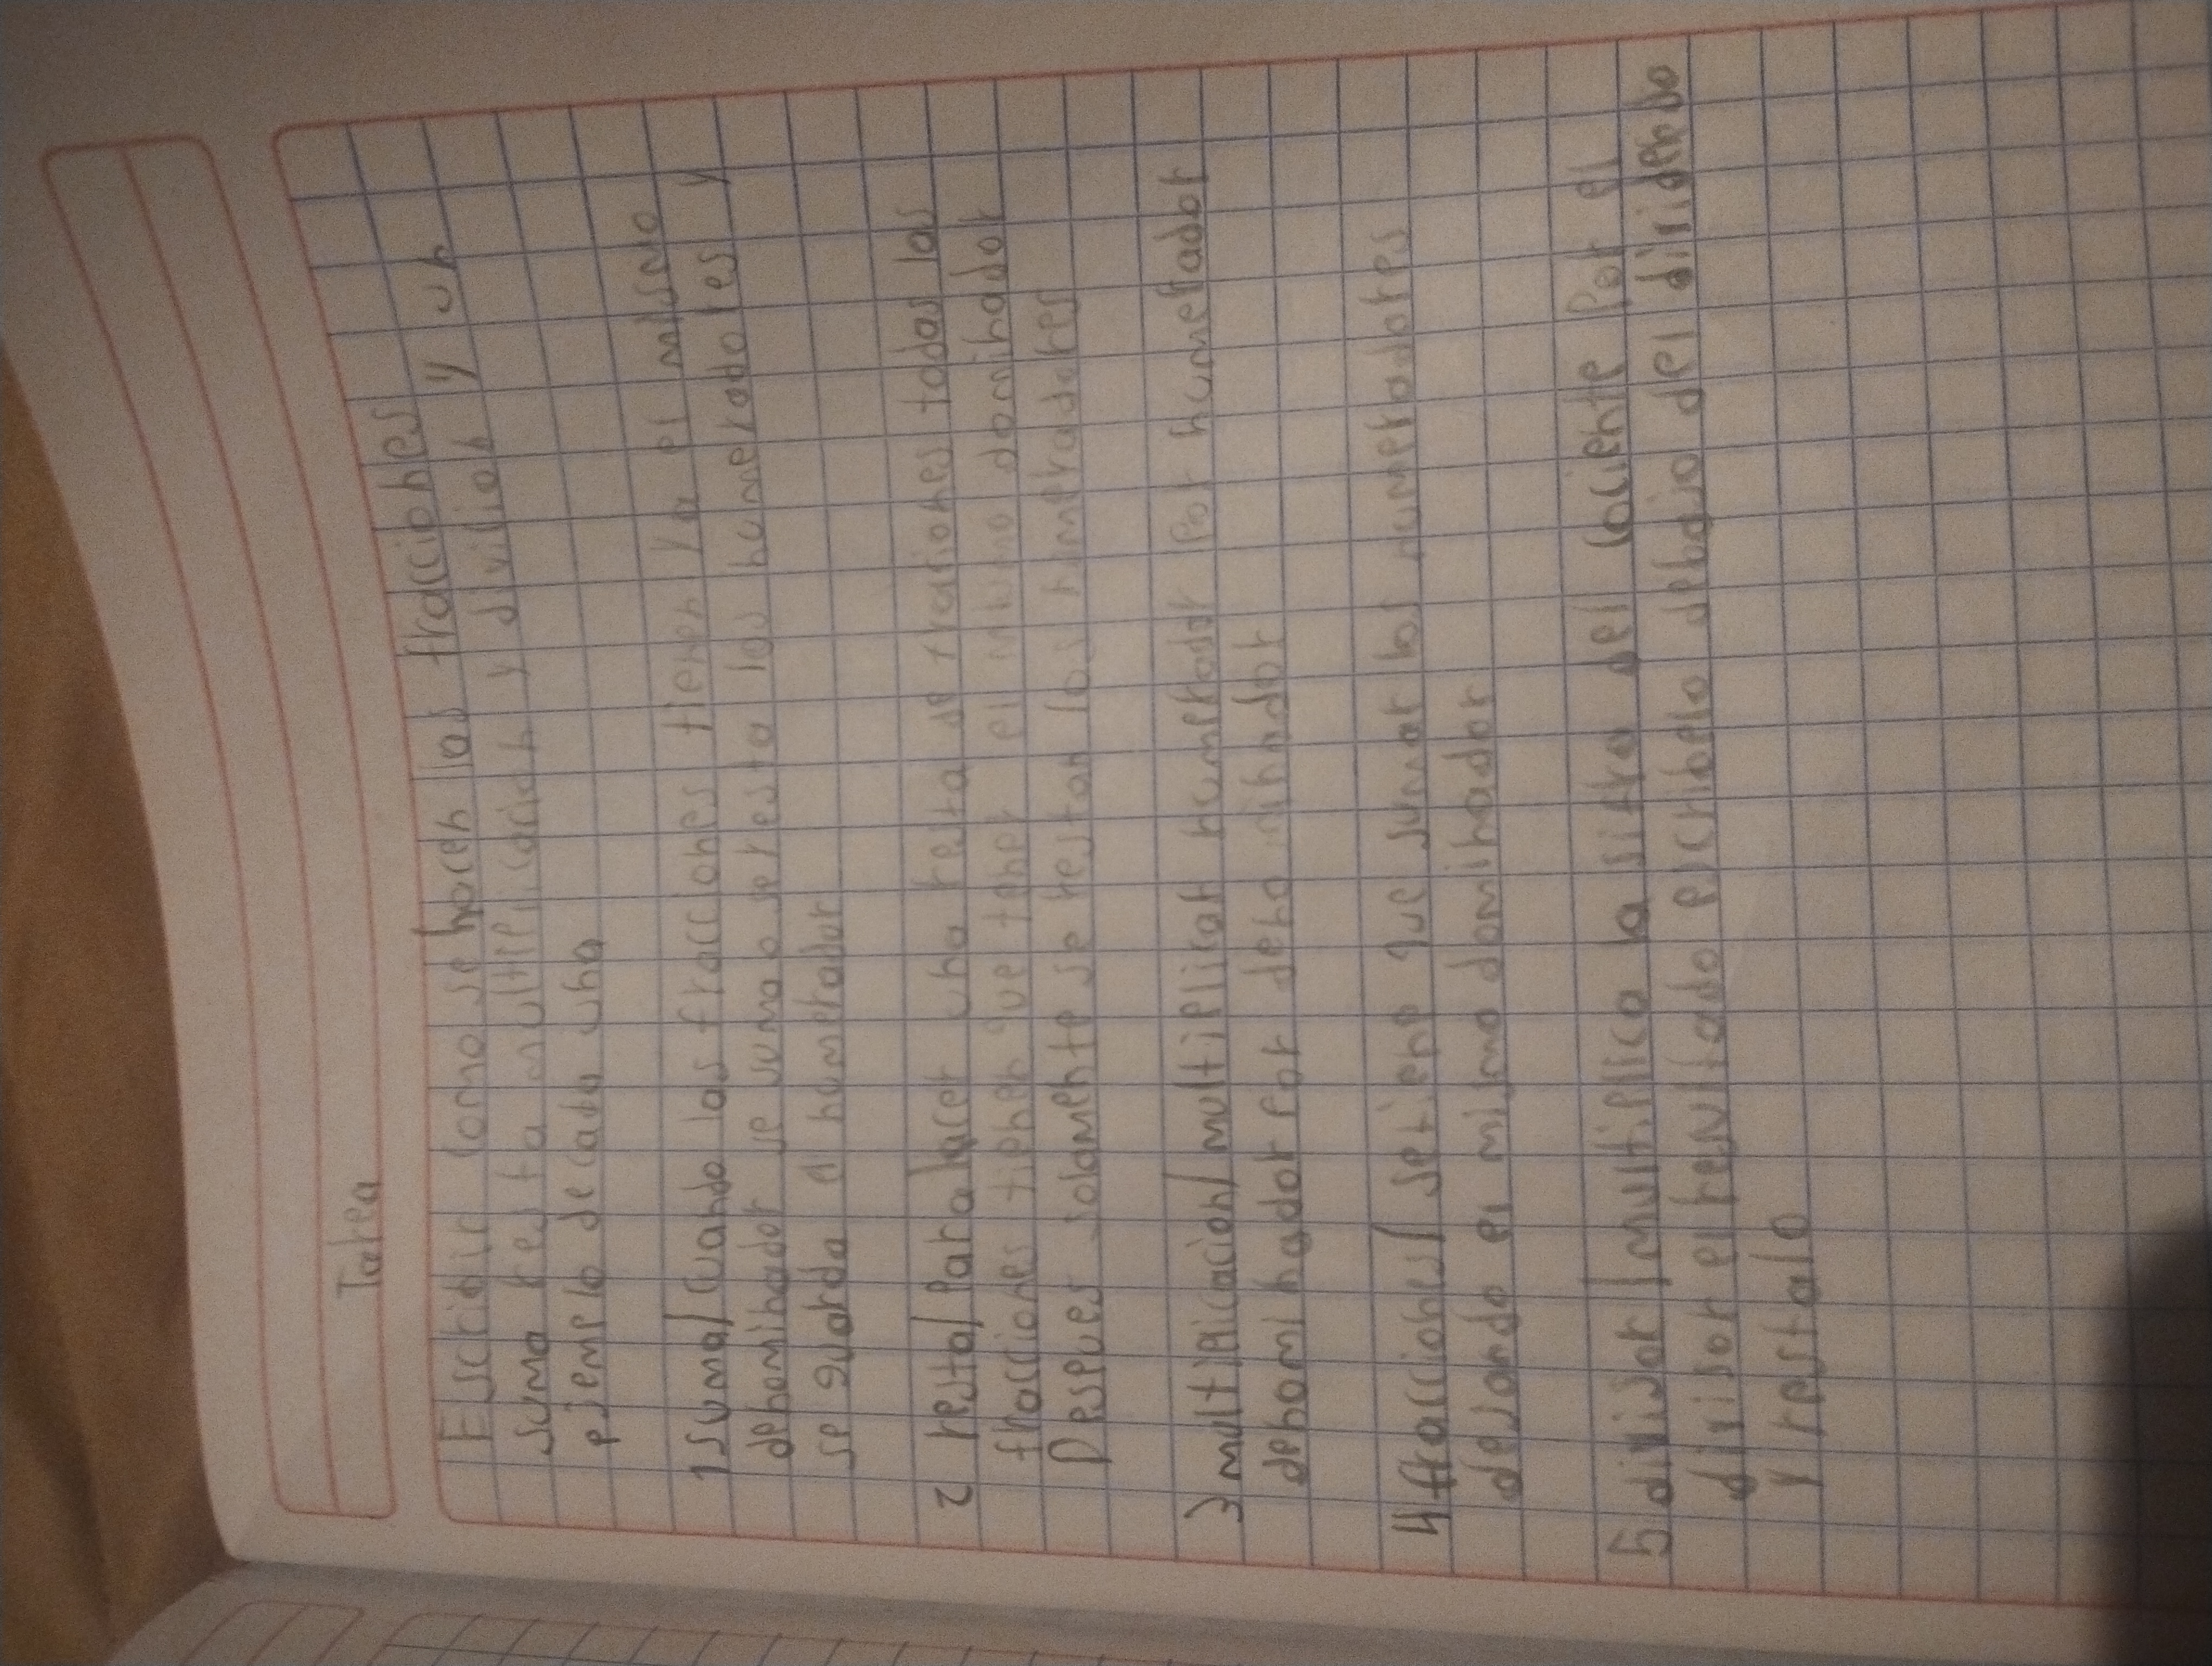 Tarea
Escridir como se hacen las fracciones
suma resta multiplicación y divición y un
ejemplo de cada una
1 suma/ cuando las fracciones tienen ya el mismo
denominador se suma o se resta los numeradores y
se guarda el numerador
2 resta/ Para hacer una resta de fraciones todas las
fracciones tienen que tener el mismo dominador
Despues solamente se restan los numeradores
3 multiplicacion/ multiplicar numerador Por numerador
denominador Por denominador
4 fracciones/ se tiene que sumar los numeradores
dejando el mismo dominador
5 divisor/ multiplica la sifra del cociente Por el
divisor el resultado escribelo debajo del dividendo
y restalo